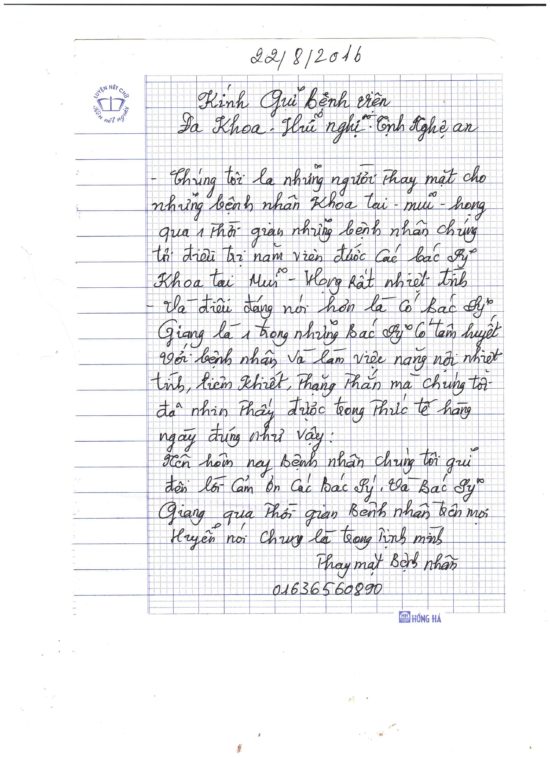 22/8/2016
LUYỆN NÉT CHỮ
RÈN NẾT NGƯỜI
Kính Gửi Bệnh viên
Đa Khoa - Hữu nghị - Tỉnh Nghệ an
- Chúng tôi la những người Thay mặt cho
những bệnh nhân Khoa tai - mũi - họng
qua 1 Thời gian những bệnh nhân chúng
tôi điêu trị năm viên được Các bác sỹ
Khoa tai Mũi - Họng Rất nhiêt tình
- Và điêu đáng nói hơn là Cố Bác Sỹ
Giang là 1 trong những Bác Sỹ Có tâm huyết
Với bệnh nhân Và làm việc năng nội nhiệt
tình, liêm Khiết, Thẳng Thắn mà chúng tôi
đa nhìn Thấy được trong Thức tế hàng
ngày đúng như vậy:
Nên hôm nay Bệnh nhân chúng tôi gửi
đên lời Cảm ơn Các Bác Sỹ Và Bác Sỹ
Giang qua Thời gian Bênh nhân trên mọi
Huyển nói Chung là trong tỉnh mình
Thay mặt Bệnh nhân
01636560890
HỒNG HÀ